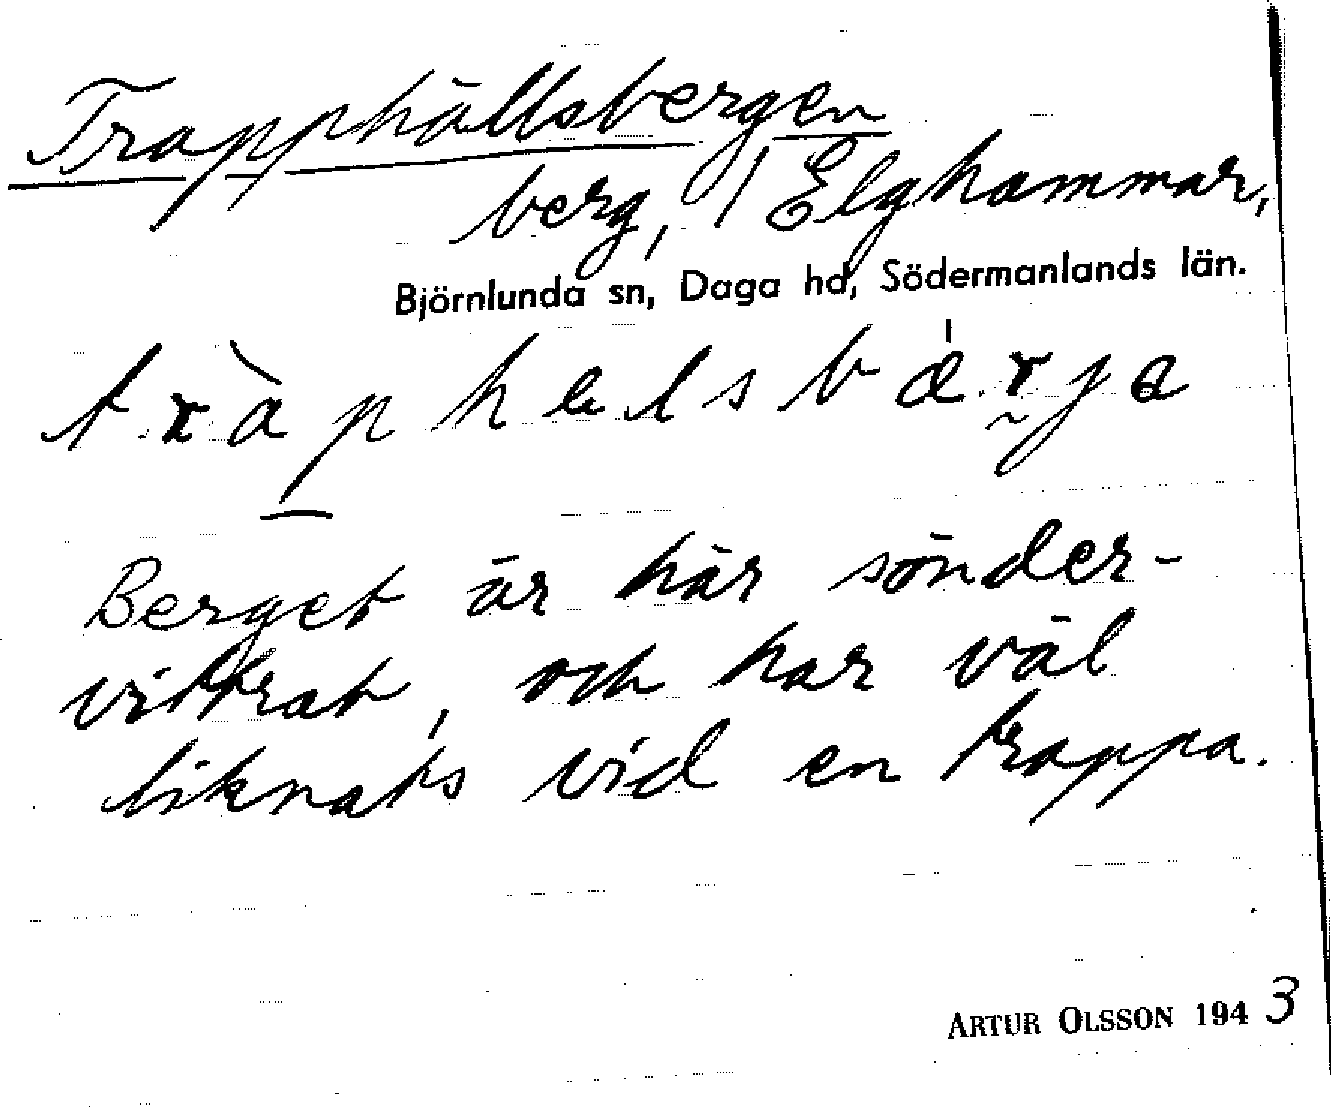 Trapphällsbergen
berg, / Elghammar,
Björnlunda sn, Daga hd, Södermanlands län.
tràphelsbǽrja
Berget är här sönder-
vittrat, och har väl
liknats vid en trappa.
ARTUR OLSSON 1943